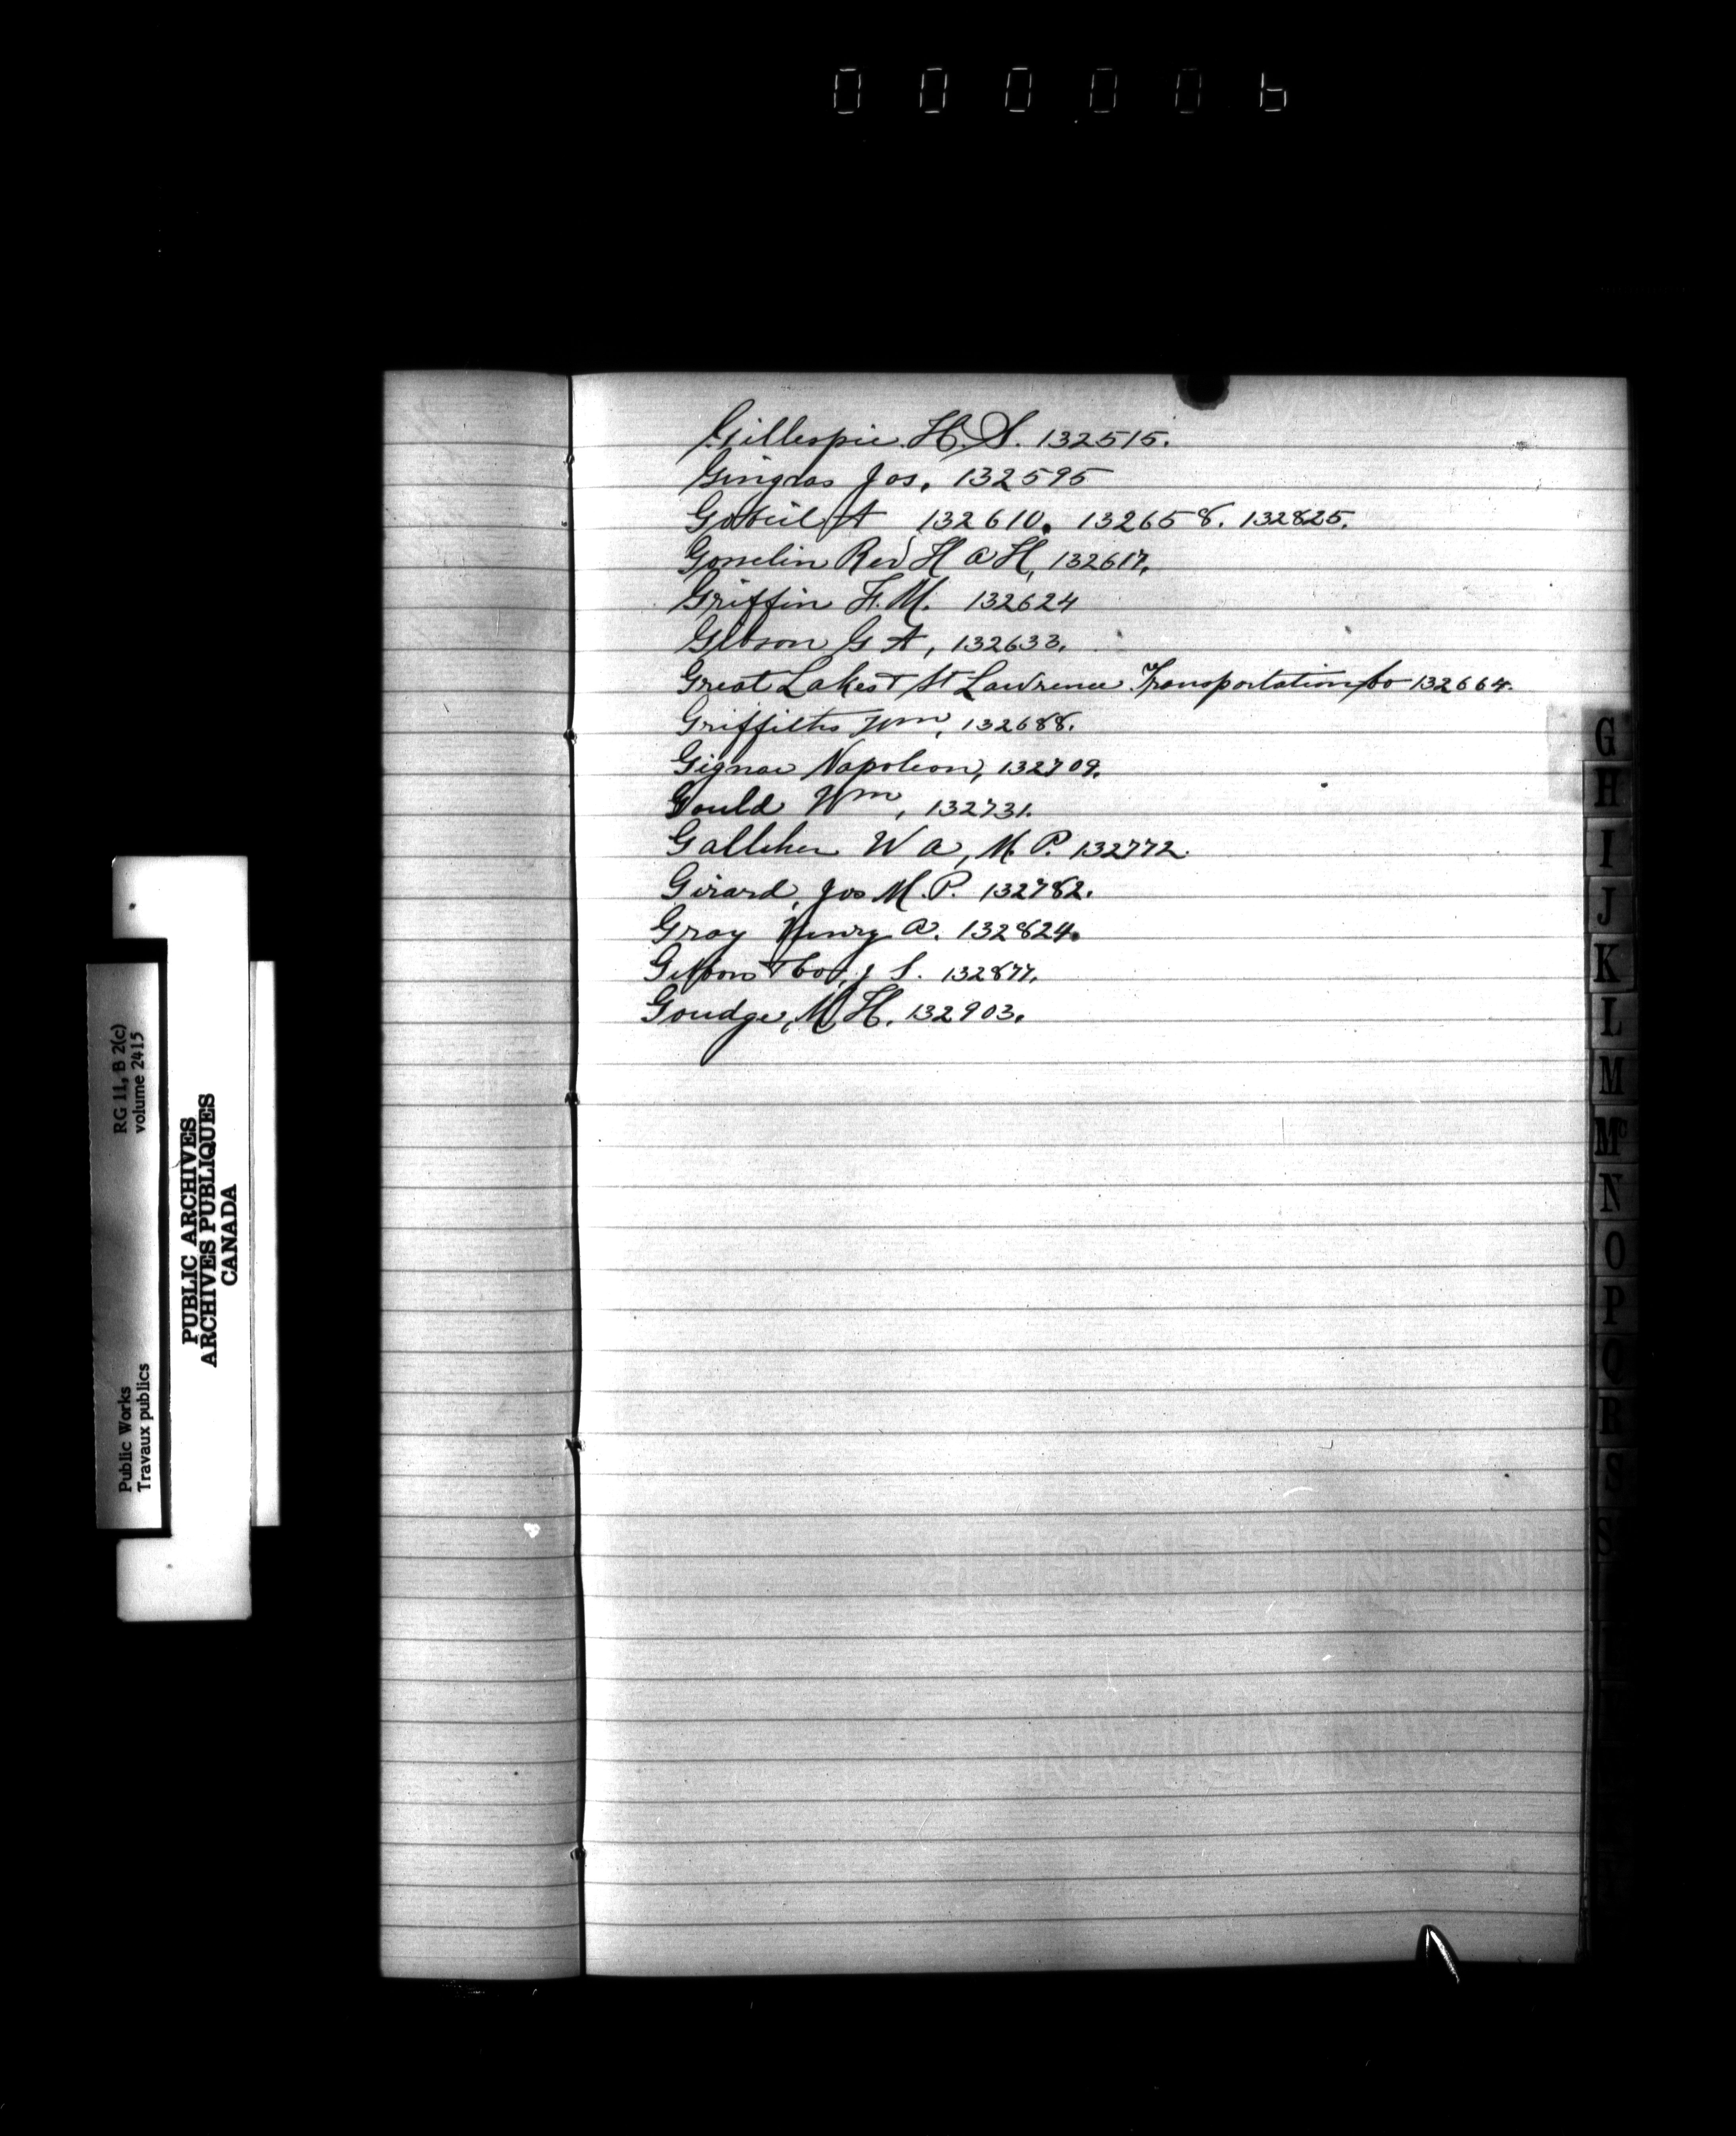 000006
Gillespie H.S. 132515.
Gingras Jos. 132595
Gobeil A 132610. 132658. 132825.
Gosselin Rev H a H, 132617.
Griffin F.M. 132624
Gibson G A, 132633.
Great Lakes & St Lawrence Transportation Co 132664.
Griffiths Wm, 132688.
Gignac Napoleon, 132709.
Gould Wm, 132731.
Galliher W a, M.P. 132772.
Girard, Jos M.P. 132782.
Gray Henry a. 132824.
Gibbons & Co, J S. 132877.
Goudge, M H. 132903.
G
H
I
J
K
L
M
Mc
N
O
P
Q
R
S
RG 11, B 2(c)
volume 2415
Public Works
Travaux publics
PUBLIC ARCHIVES
ARCHIVES PUBLIQUES
CANADA